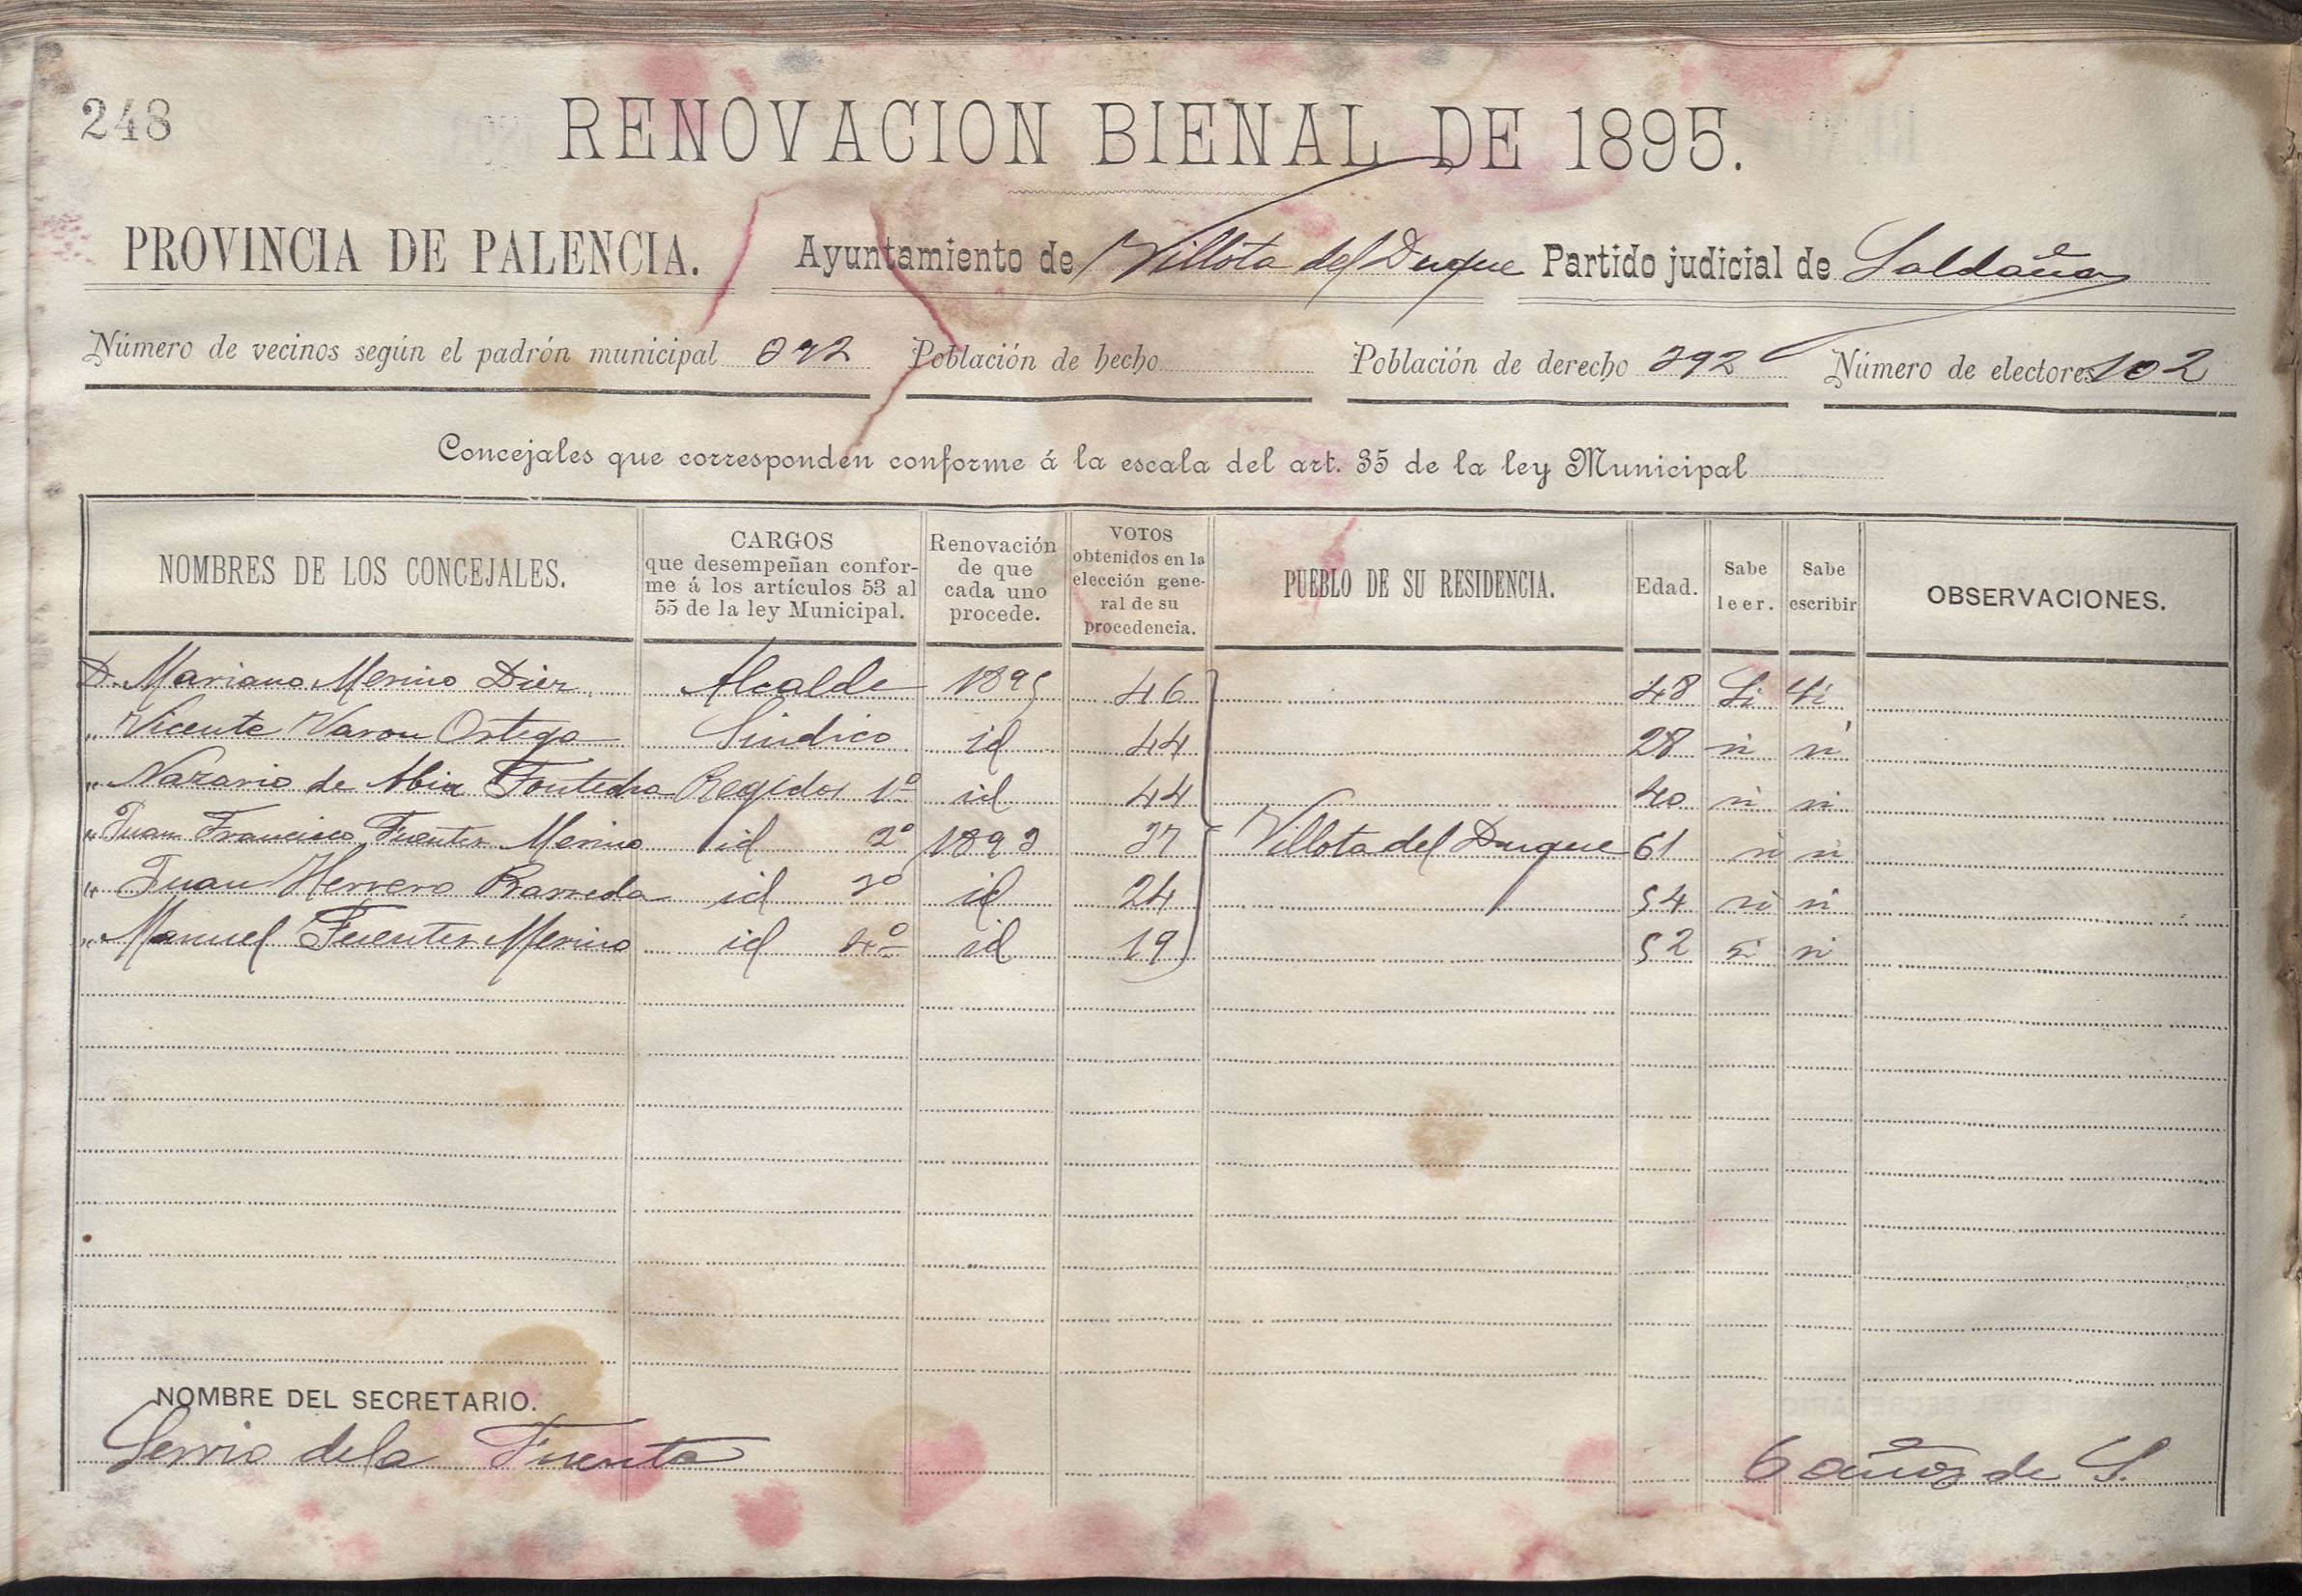 248
RENOVACION BIENAL DE 1895.
PROVINCIA DE PALENCIA. Ayuntamiento de Villota del Duque Partido judicial de Saldaña
Número de vecinos según el padrón municipal Población de hecho Población de derecho 392 Número de electores 102
Concejales que corresponden conforme á la escala del art. 35 de la ley Municipal
NOMBRES DE LOS CONCEJALES. CARGOS que desempeñan conforme á los artículos 53 al 55 de la ley Municipal. Renovación de que cada uno procede. VOTOS obtenidos en la elección general de su procedencia. PUEBLO DE SU RESIDENCIA. Edad. Sabe leer. Sabe escribir OBSERVACIONES.
D. Mariano Merino Diez Alcalde 1895 46 48 Si Si
" Vicente Varon Ortega Sindico id 44 28 si si
" Nazario de Abia Fontecha Regidor 1º id 44 40 si si
" Juan Francisco Fuentes Merino id 2º 1893 27 Villota del Duque 61 si si
" Juan Herrero Barreda id 3º id 24 54 si si
" Manuel Fuentes Merino id 4º id 19 52 si si
NOMBRE DEL SECRETARIO.
de la Fuente 6 años de S.